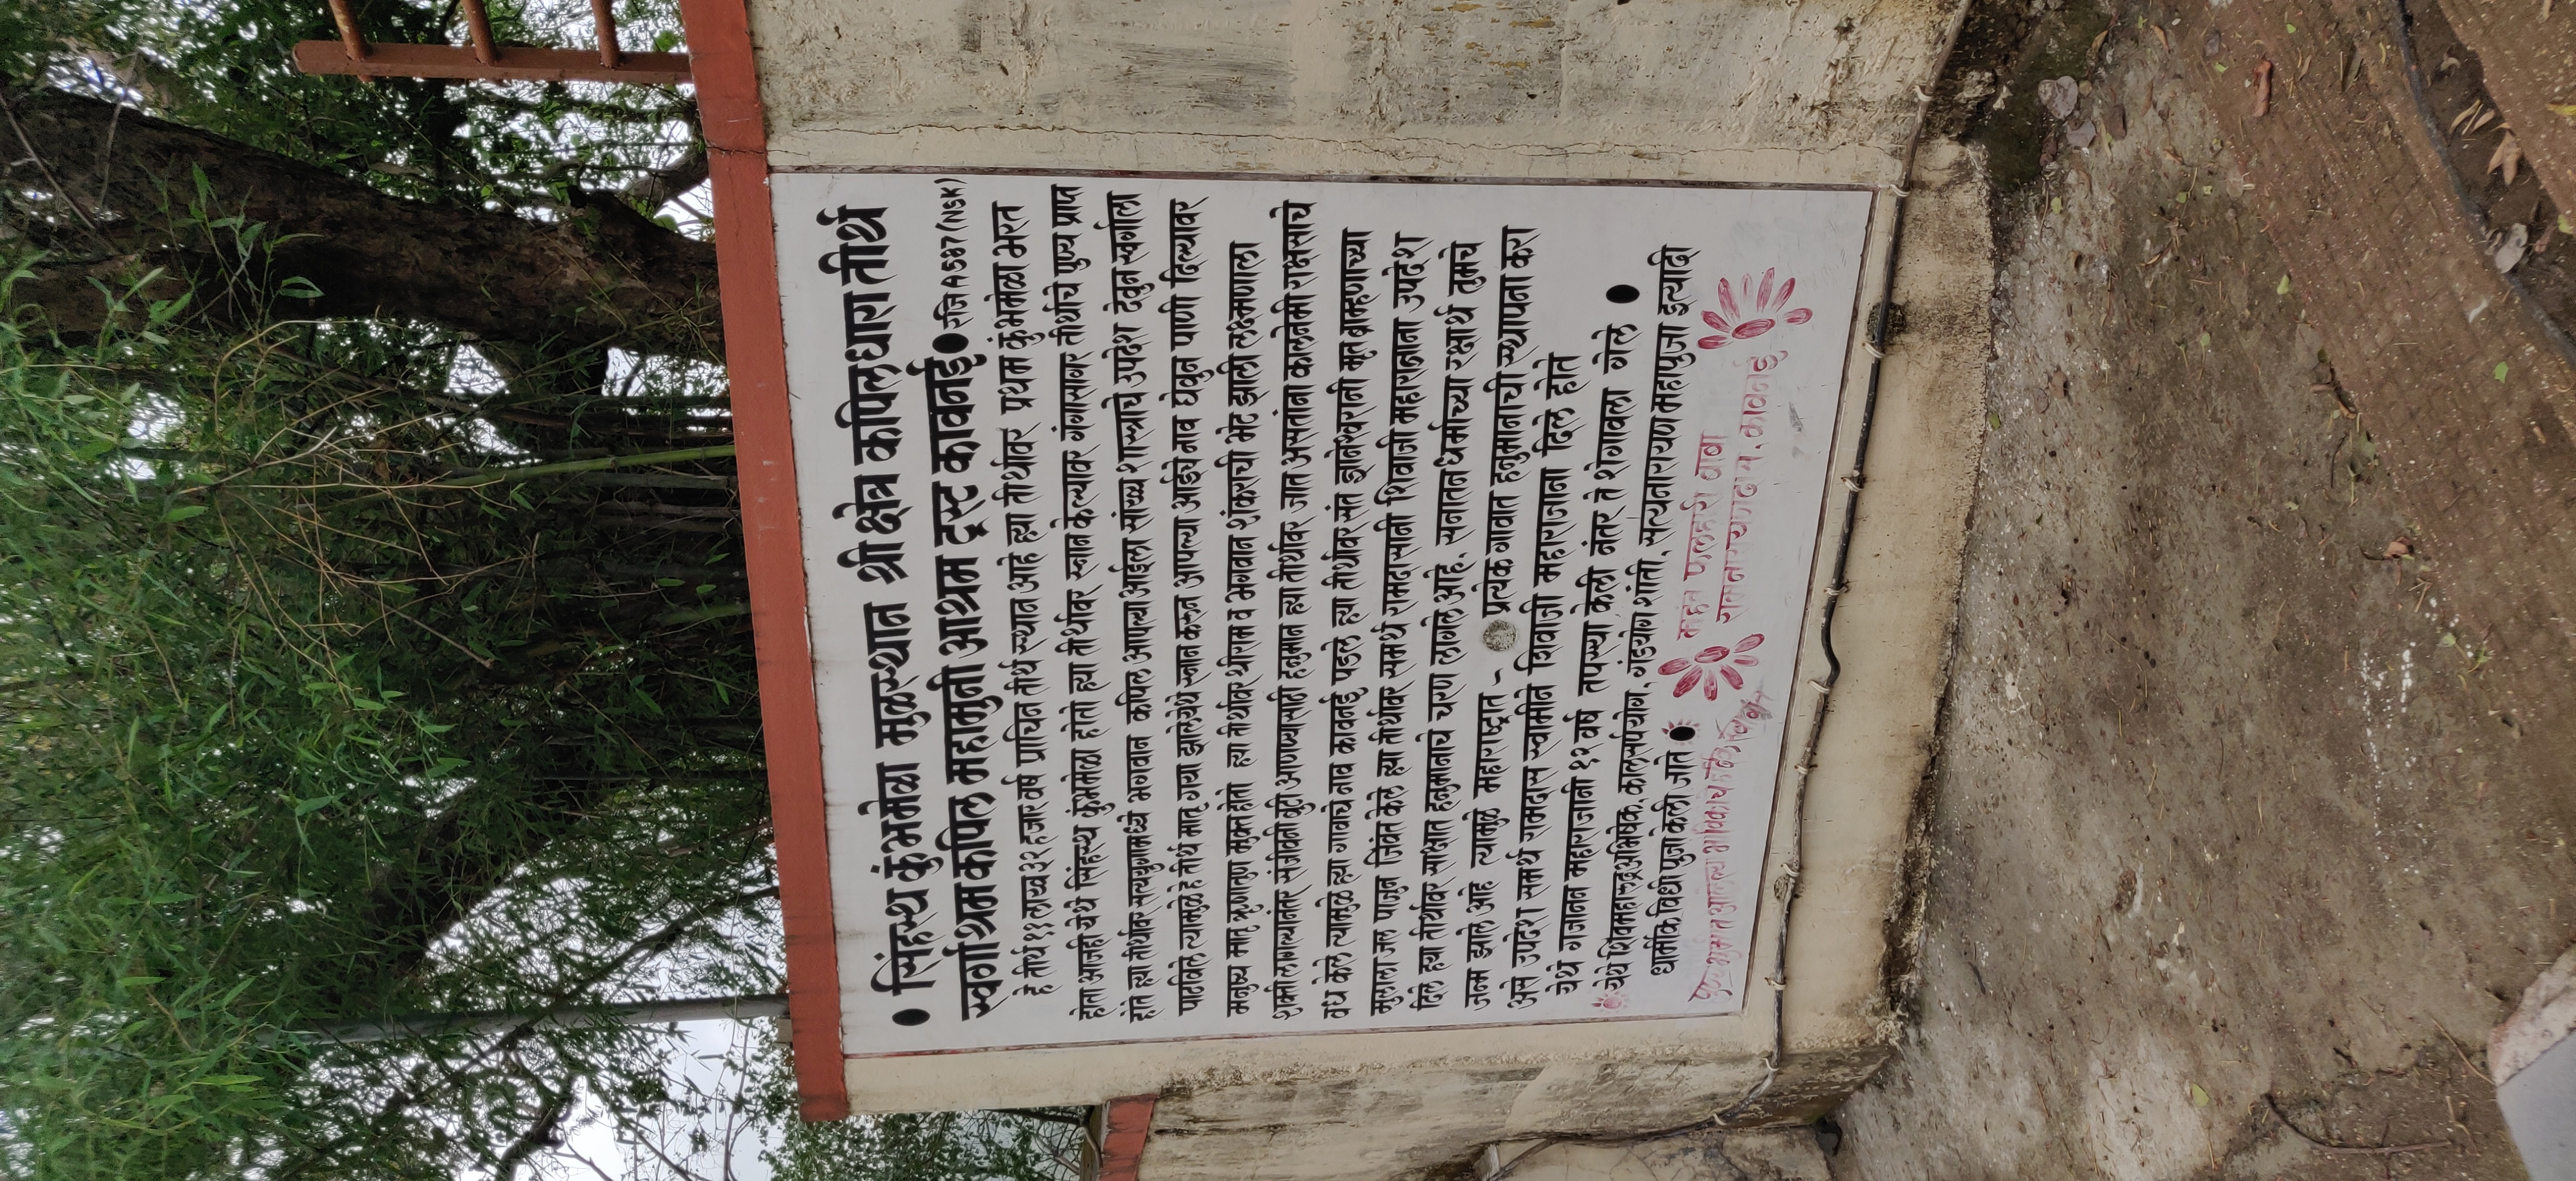 ● सिंहस्थ कुंभमेळा मुळस्थान श्री क्षेत्र कपिलधारा तीर्थ
स्वर्गाश्रम कपिल महामुनी आश्रम ट्रस्ट कावनई ● रजि A 587 (NSK)
हे तीर्थ ११ लाख ३२ हजार वर्ष प्राचिन तीर्थ स्थान आहे ह्या तीर्थावर प्रथम कुंभमेळा भरत
होता आजही येथे सिंहस्थ कुंभमेळा होतो ह्या तीर्थावर स्नान केल्यावर गंगासागर तीर्थाचे पुण्य प्राप्त
होते ह्या तीर्थावर सत्ययुगामध्ये भगवान कपिल आपल्या आईला सांख्य शास्त्राचे उपदेश देवुन स्वर्गाला
पाठविले त्यामुळे हे तीर्थ मातृ गया झाले येथे स्नान करून आपल्या आईचे नाव घेवुन पाणी दिल्यावर
मनुष्य मातृ ऋणातुण मुक्त होतो ह्या तीर्थावर श्रीराम व भगवान शंकराची भेट झाली लक्ष्मणाला
शक्ती लागल्यानंतर संजीवनी बुटी आणण्यासाठी हनुमान ह्या तीर्थावर जात असतांना कालनेमी राक्षसाचे
वध केले त्यामुळे ह्या गावाचे नाव कावनई पडले ह्या तीर्थावर संत ज्ञानेश्वरानी मृत ब्राम्हणाच्या
मुलाला जल पाजुन जिवंत केले ह्या तीर्थावर समर्थ रामदासानी शिवाजी महाराजाना उपदेश
दिले हया तीर्थावर साक्षात हनुमानाचे चरण लागले आहे. सनातन धर्माच्या रक्षार्थ तुमचे
जन्म झाले आहे त्यामुळे महाराष्ट्रात - प्रत्येक गावात हनुमानाची स्थापना करा
असे उपदेश समर्थ रामदास स्वामीने शिवाजी महाराजाना दिले होते
येथे गजानन महाराजानी १२ वर्ष तपस्या केली नंतर ते शेगावला गेले ●
येथे शिवमहारुद्रअभिषेक. कालसर्पयोग. गंडयोग शांती. सत्यनारायण महापुजा इत्यादी
धार्मीक विधी पुजा केली जाते ●
आलेल्या भाविकाचे
महंत फलहारी बाबा
रामनारायणदास. कावनई